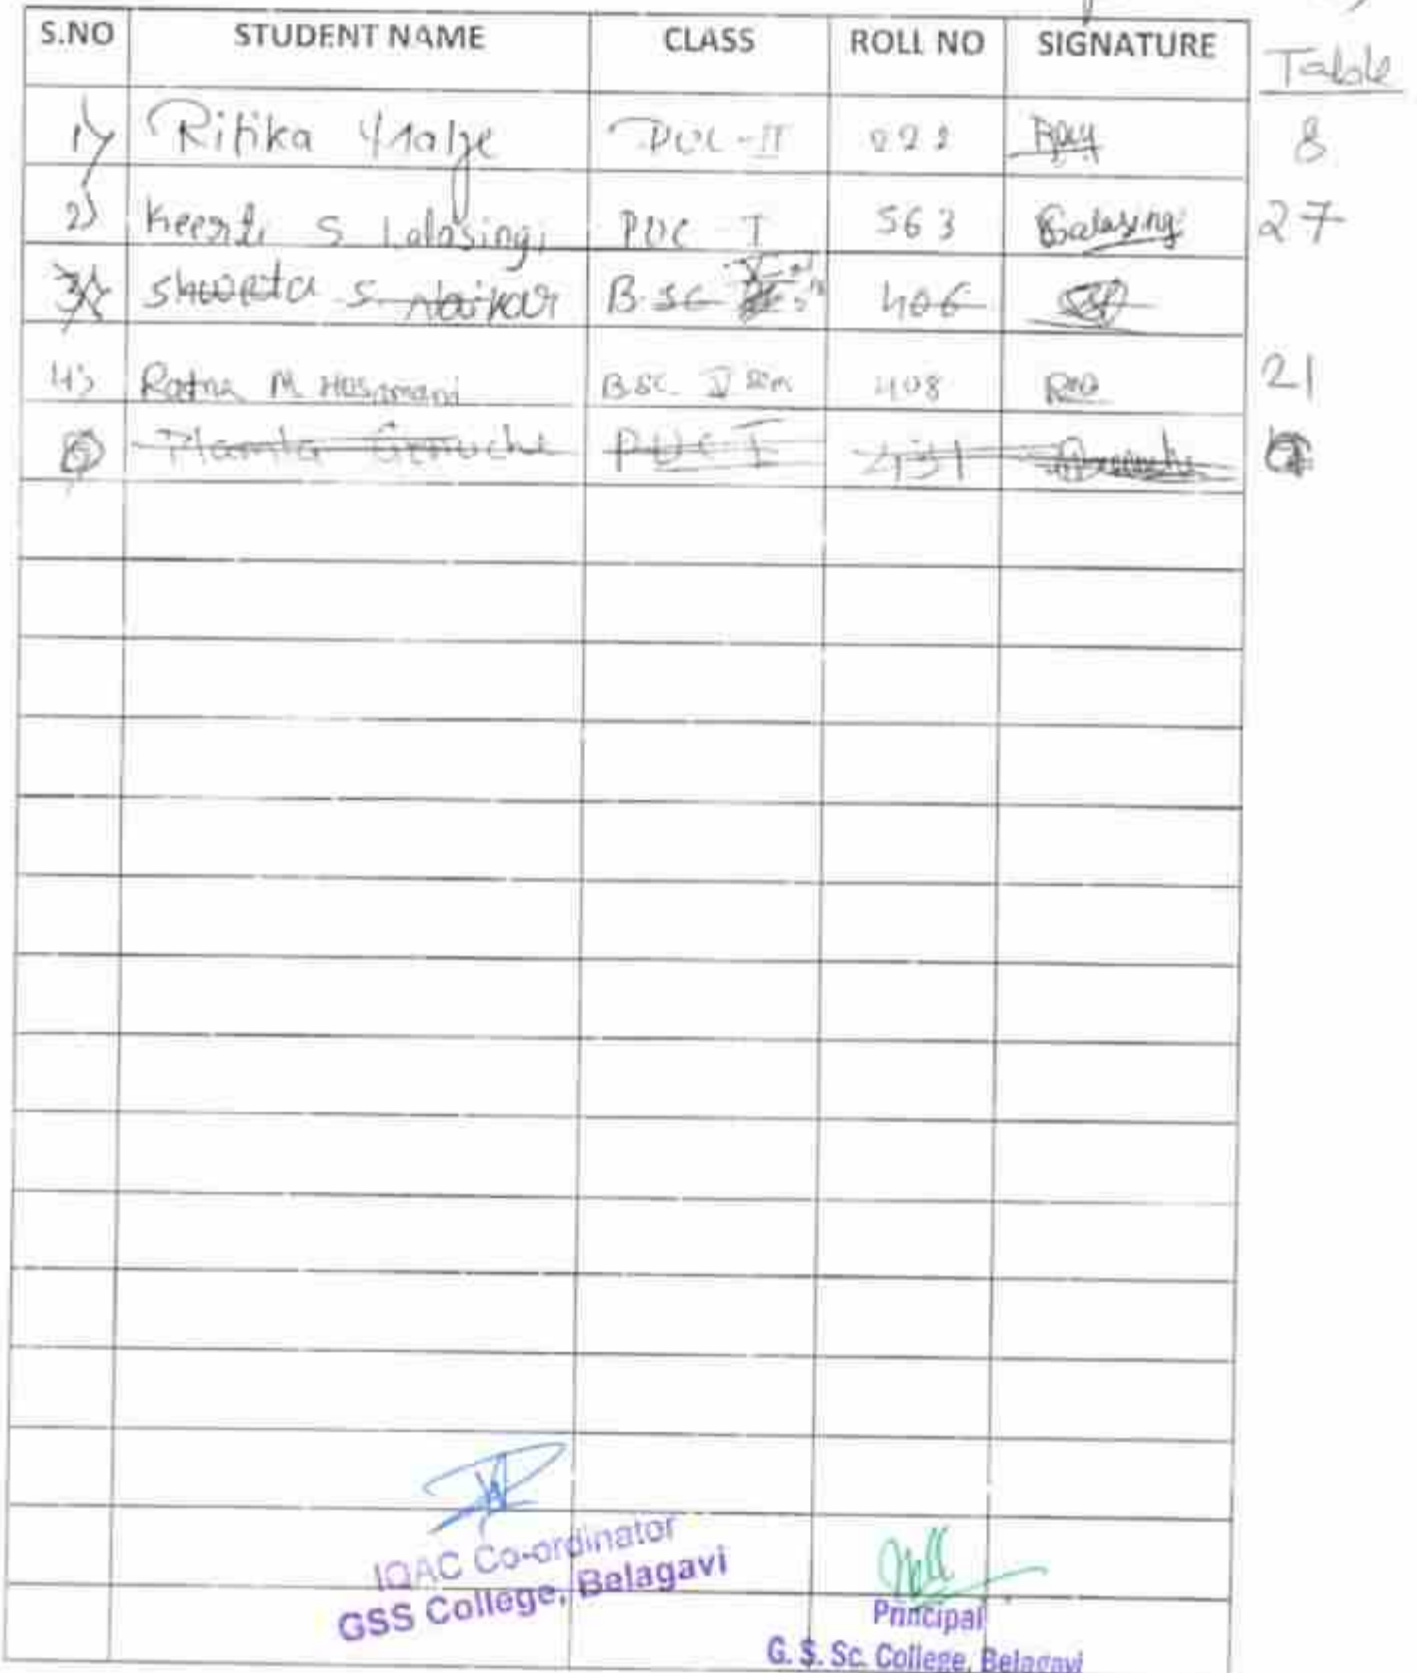 S.NO STUDENT NAME CLASS ROLL NO SIGNATURE Table
1) Ritika PUC-II 222 8
2) Keerti S Lalasingi PUC I 563 Lalasingi 27
3) Shweta S. Naikar B.sc 406
4) Ratna M Hosamani BSC V Sem 408 21
5 Mamta PUC I 431
IQAC Co-ordinator
GSS College, Belagavi
Principal
G. S. Sc. College, Belagavi